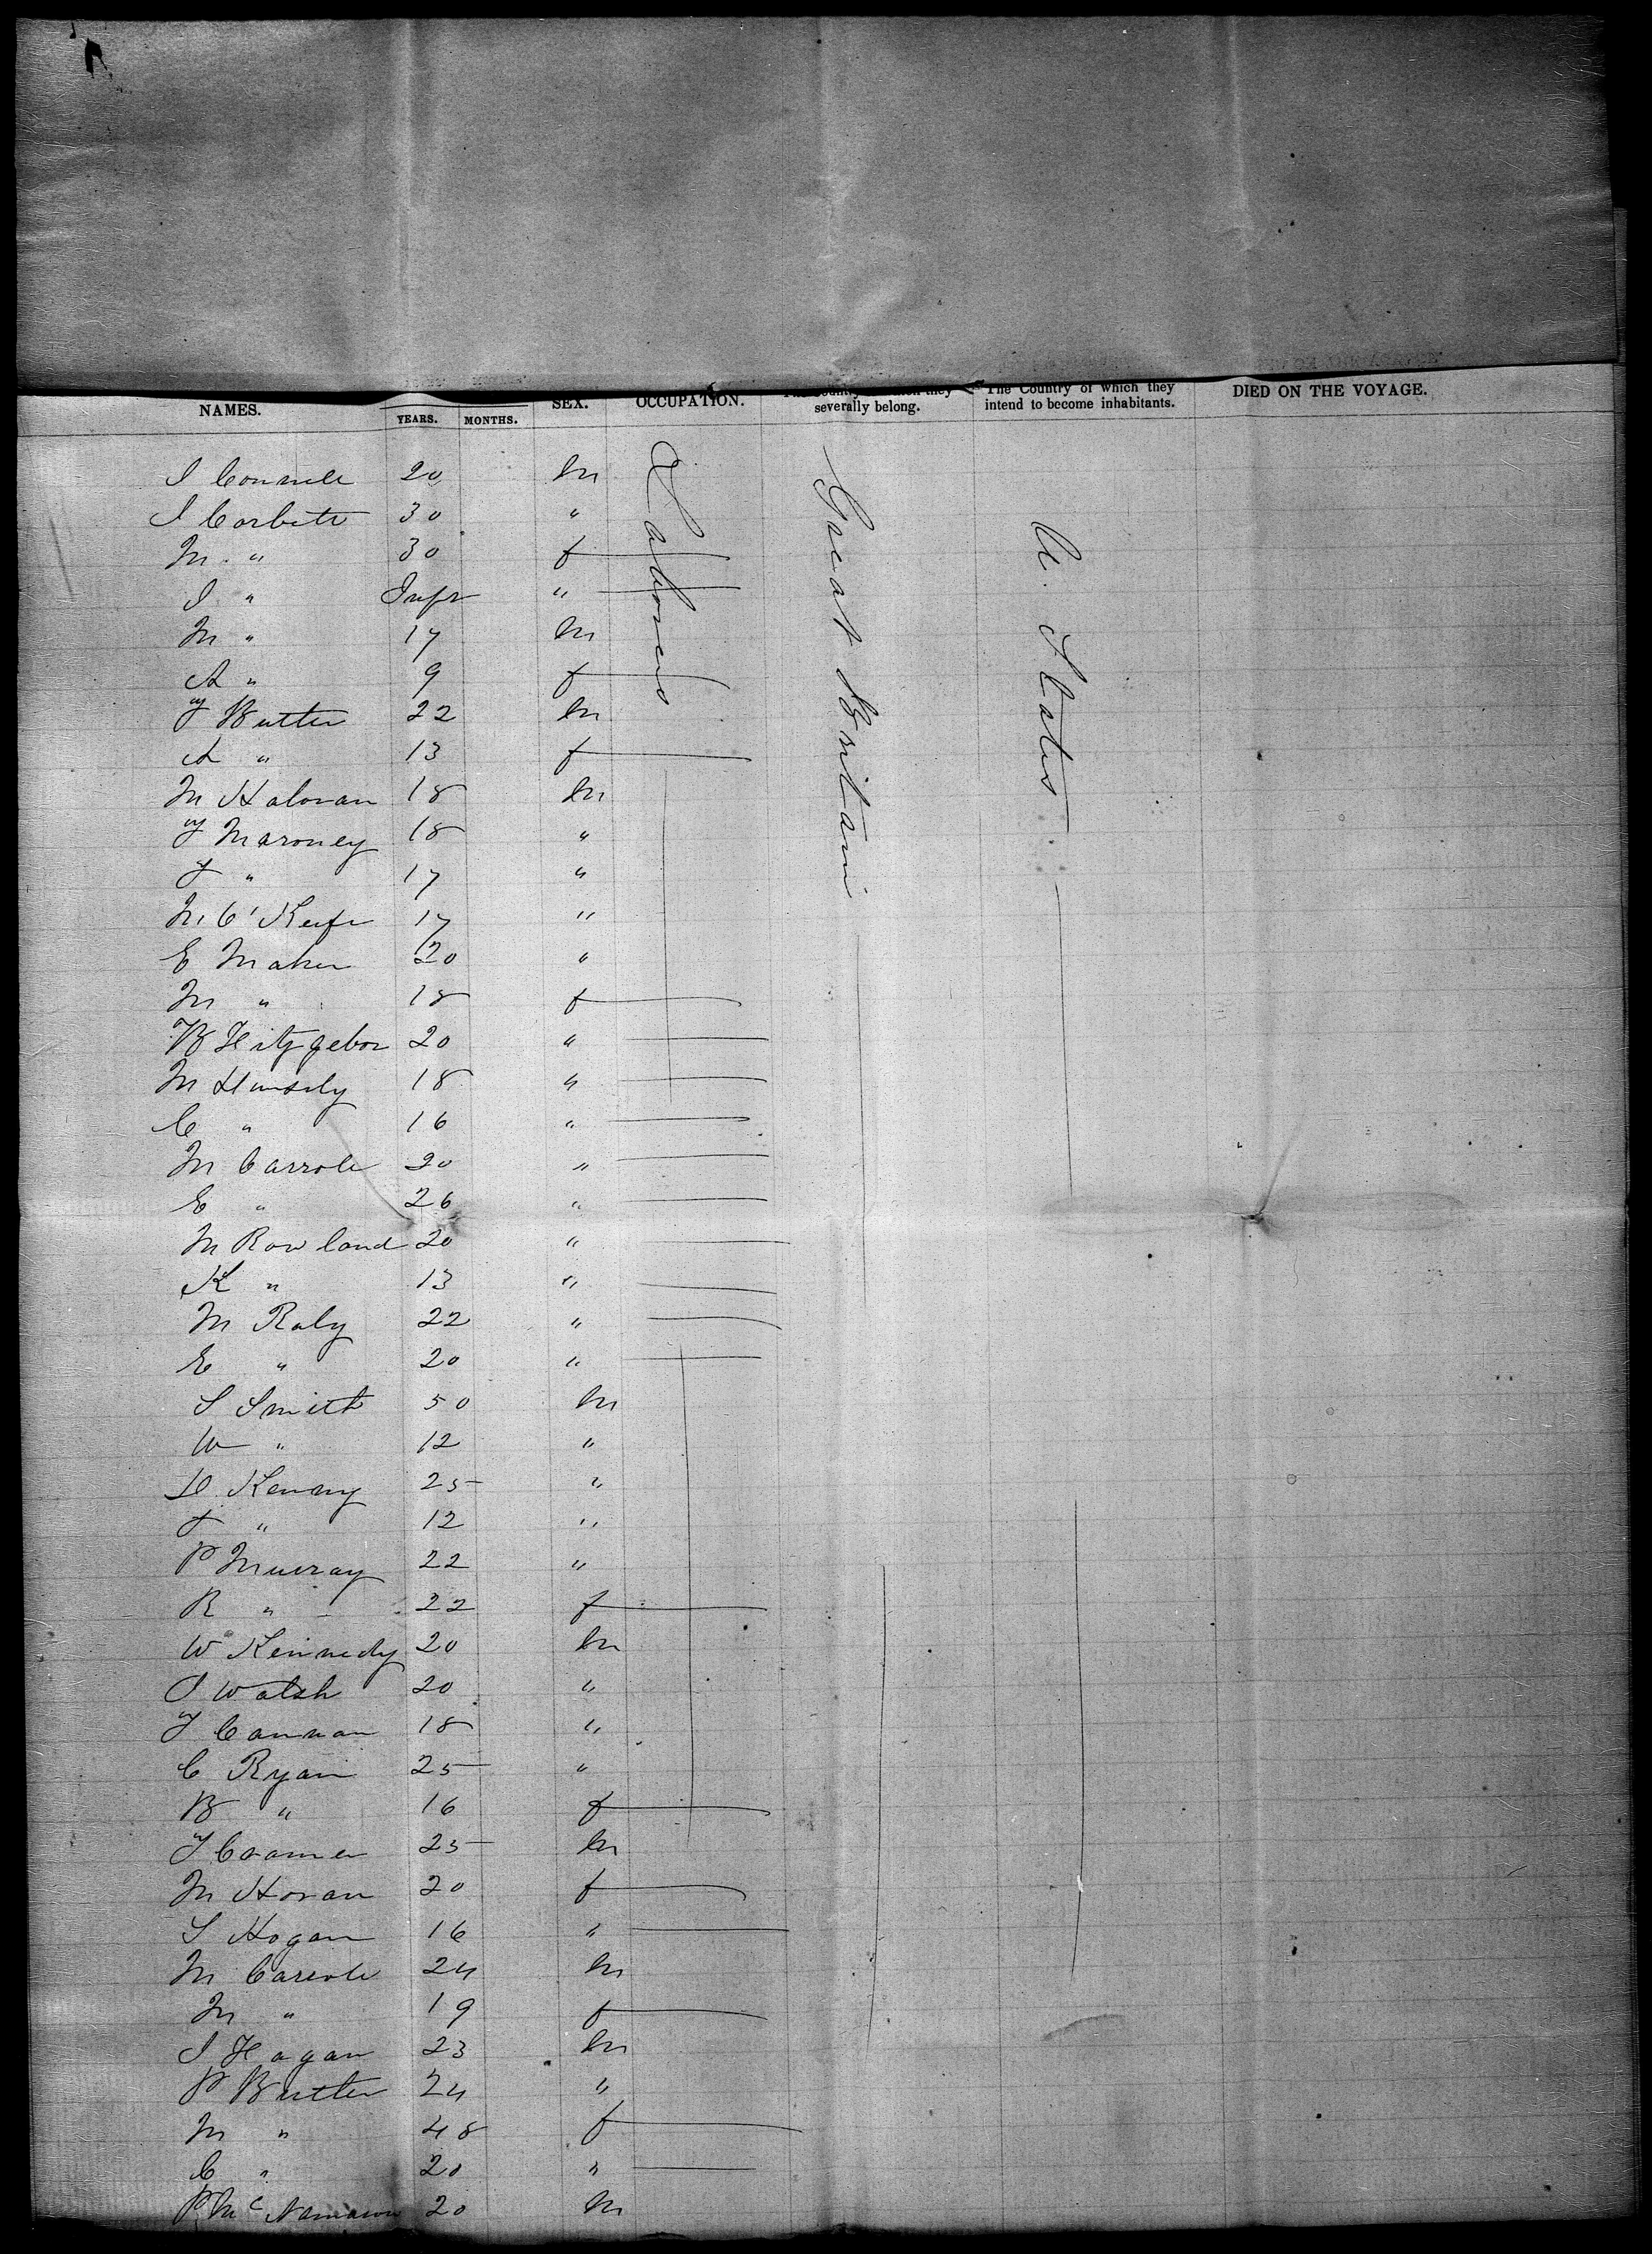 NAMES. YEARS. MONTHS. SEX. OCCUPATION. severally belong. The Country of which they intend to become inhabitants. DIED ON THE VOYAGE.
Labourers
Great Britain
U. States
I Connell 20 m
I Corbett 30 "
M " 30 f
I " Inft "
M " 17 m
A " 9 f
J Butler 22 m
A " 13 f
M Haloran 18 m
J Maroney 18 "
J " 17 "
M O'Keefe 17 "
E Maher 20 "
M " 18 f
B 20 "
M 18 "
C " 16 "
M Carrole 20 "
E " 26 "
M Rowland 20 "
K " 13 "
M Raly 22 "
E " 20 "
S Smith 50 m
W " 12 "
D Kenny 25 "
J " 12 "
P Murray 22 "
R " 22 f
W Kennedy 20 m
I Walsh 20 "
J Cannan 18 "
C Ryan 25 "
B " 16 f
J Cramer 25 m
M Horan 20 f
S Hogan 16 "
M Carrole 24 m
M " 19 f
I Hagan 23 m
P Butler 24 "
M " 48 f
C " 20 "
P McNamara 20 m